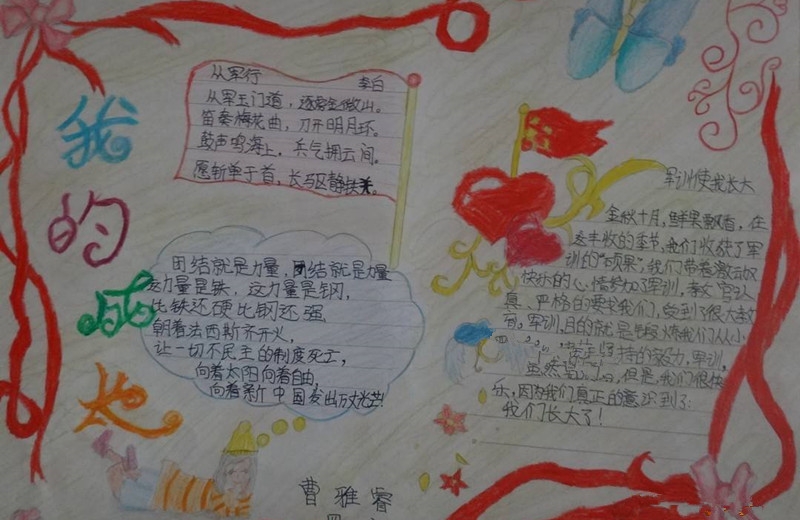 我的成长
从军行
李白
从军玉门道，逐虏金微山。
笛奏梅花曲，刀开明月环。
鼓声鸣海上，兵气拥云间。
愿斩单于首，长驱静铁关。
团结就是力量，团结就是力量
这力量是铁，这力量是钢，
比铁还硬比钢还强，
朝着法西斯齐开火，
让一切不民主的制度死亡，
向着太阳向着自由，
向着新中国发出万丈光芒！
军训使我长大
金秋十月，鲜果飘香，在
这丰收的季节，我们收获了军
训的“硕果”，我们带着激动又
快乐的心情参加了军训，教官认
真、严格的要求我们，受到了很大教
育。军训目的就是锻炼我们从小
坚持的毅力，军训，
虽然，但是，我们很快
乐，因为我们真正的意识到了：
我们长大了！
曹雅睿